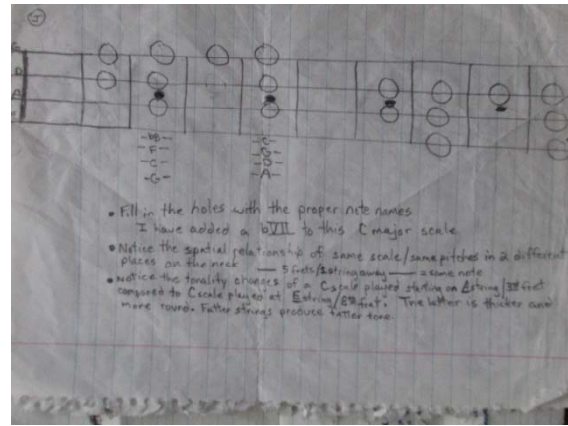 J
G
D
A
E
-bB-
-F-
-C-
-G-
-C-
-G-
-D-
-A-
• Fill in the holes with the proper note names
I have added a bVII to this C major scale
• Notice the spatial relationship of same scale/same pitches in 2 different
places on the neck — 5 frets/1string away — = same note
• Notice the tonality changes of a C scale played starting on A string/III fret
compared to C scale played at E string/8th fret. The latter is thicker and
more round. Fatter strings produce fatter tone.